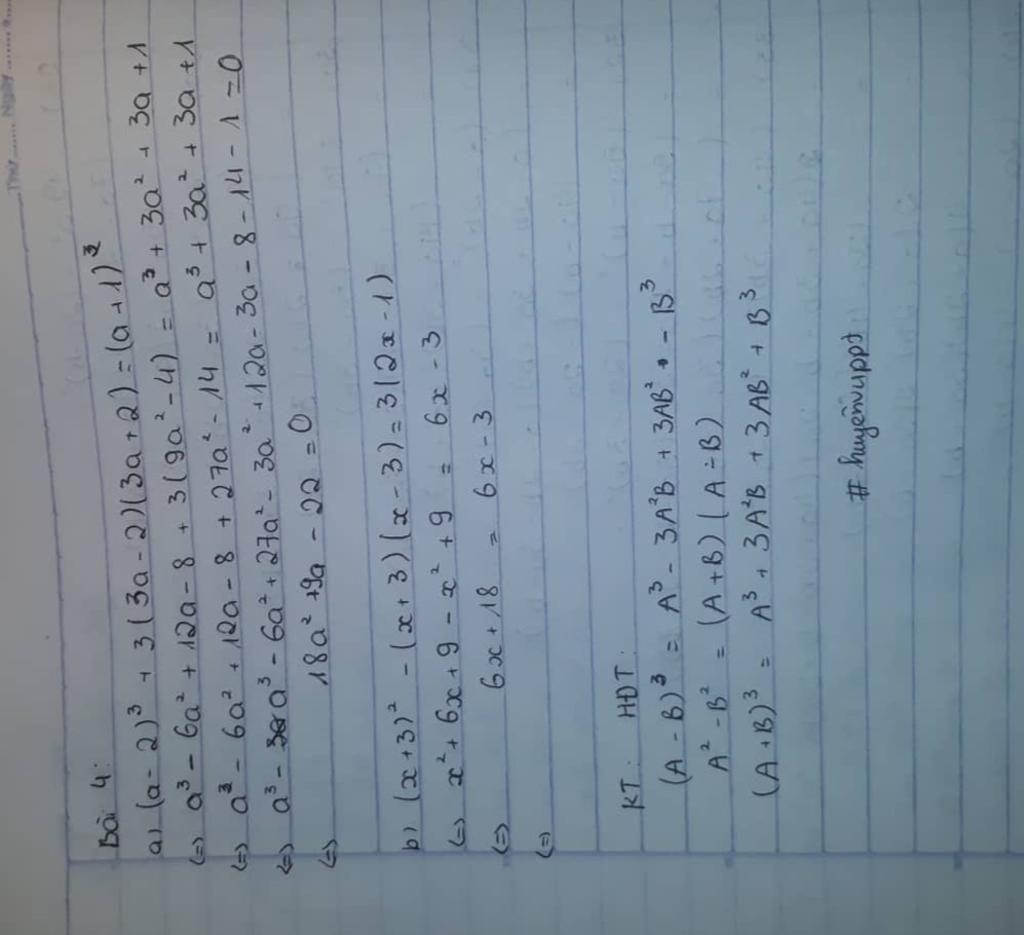 Thứ ........ Ngày ........
Bài 4:
a) (a - 2)³ + 3(3a - 2)(3a + 2) = (a + 1)³
(=) a³ - 6a² + 12a - 8 + 3(9a² - 4) = a³ + 3a² + 3a + 1
(=) a³ - 6a² + 12a - 8 + 27a² - 14 = a³ + 3a² + 3a + 1
(=) a³ - a³ - 6a² + 27a² - 3a² + 12a - 3a - 8 - 14 - 1 = 0
(=) 18a² + 9a - 22 = 0
b) (x + 3)² - (x + 3)(x - 3) = 3(2x - 1)
(=) x² + 6x + 9 - x² + 9 = 6x - 3
(=) 6x + 18 = 6x - 3
(=)
KT: HĐT:
(A - B)³ = A³ - 3A²B + 3AB² - B³
A² - B² = (A + B)(A - B)
(A + B)³ = A³ + 3A²B + 3AB² + B³